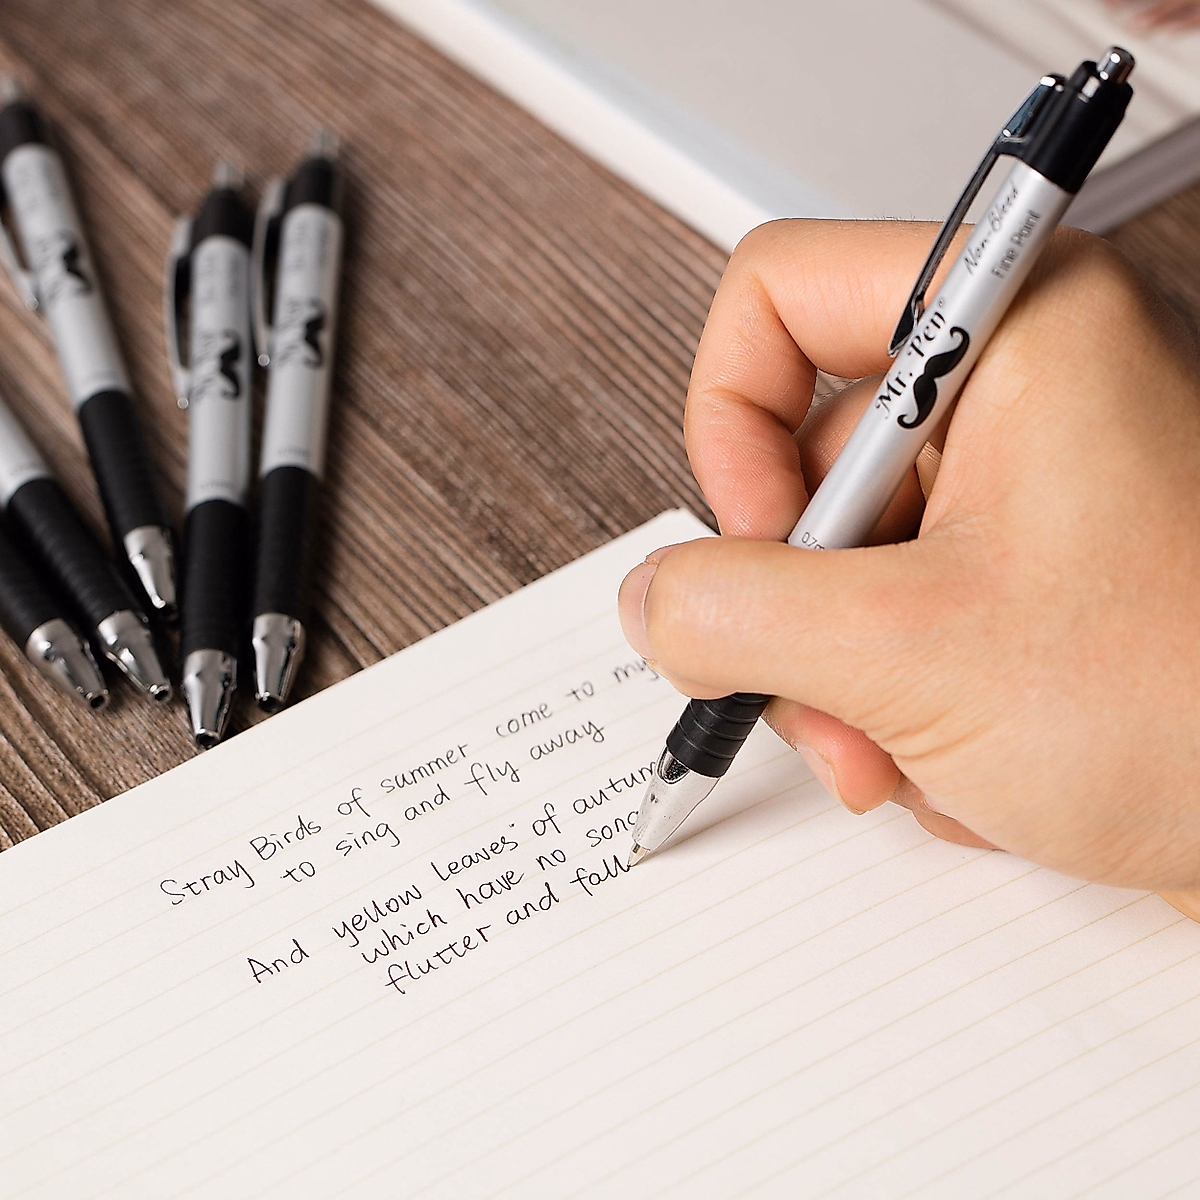 Non-Bleed
Fine Point
Mr. Pen®
Stray Birds of summer come to my
to sing and fly away
And yellow leaves of autum
which have no song
flutter and fall